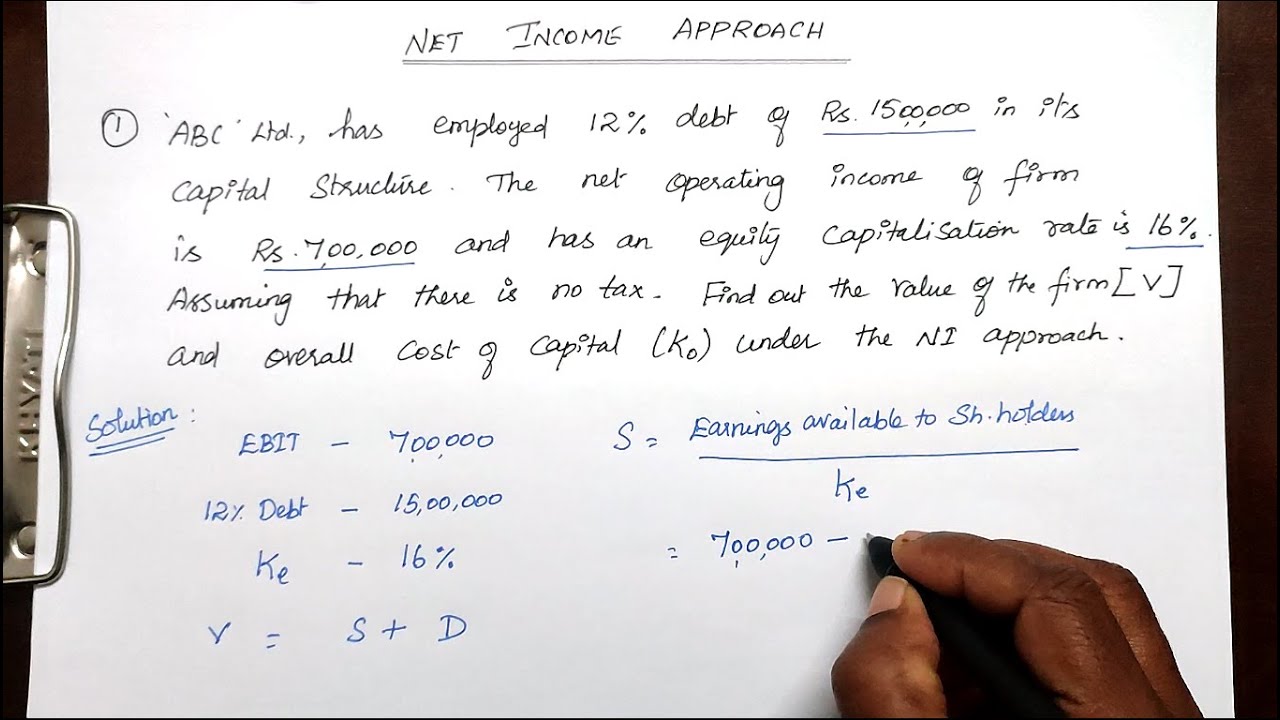 NET INCOME APPROACH
① 'ABC' Ltd., has employed 12% debt of Rs. 15,00,000 in its
Capital Structure. The net operating income of firm
is Rs. 7,00,000 and has an equity capitalisation rate is 16%.
Assuming that there is no tax. Find out the value of the firm [V]
and overall cost of capital (Ko) under the NI approach.
Solution :
EBIT – 7,00,000
12% Debt – 15,00,000
Ke – 16%
V = S + D
S = Earnings available to Sh. holders
Ke
= 7,00,000 –
KHYATI